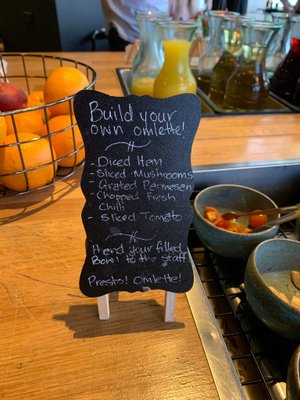 Build your
own omlette!
- Diced Ham
- Sliced Mushrooms
- Grated Parmesen
- Chopped Fresh
Chilli
- Sliced Tomato
Hand your filled
Bowl to the staff
Presto! Omlette!